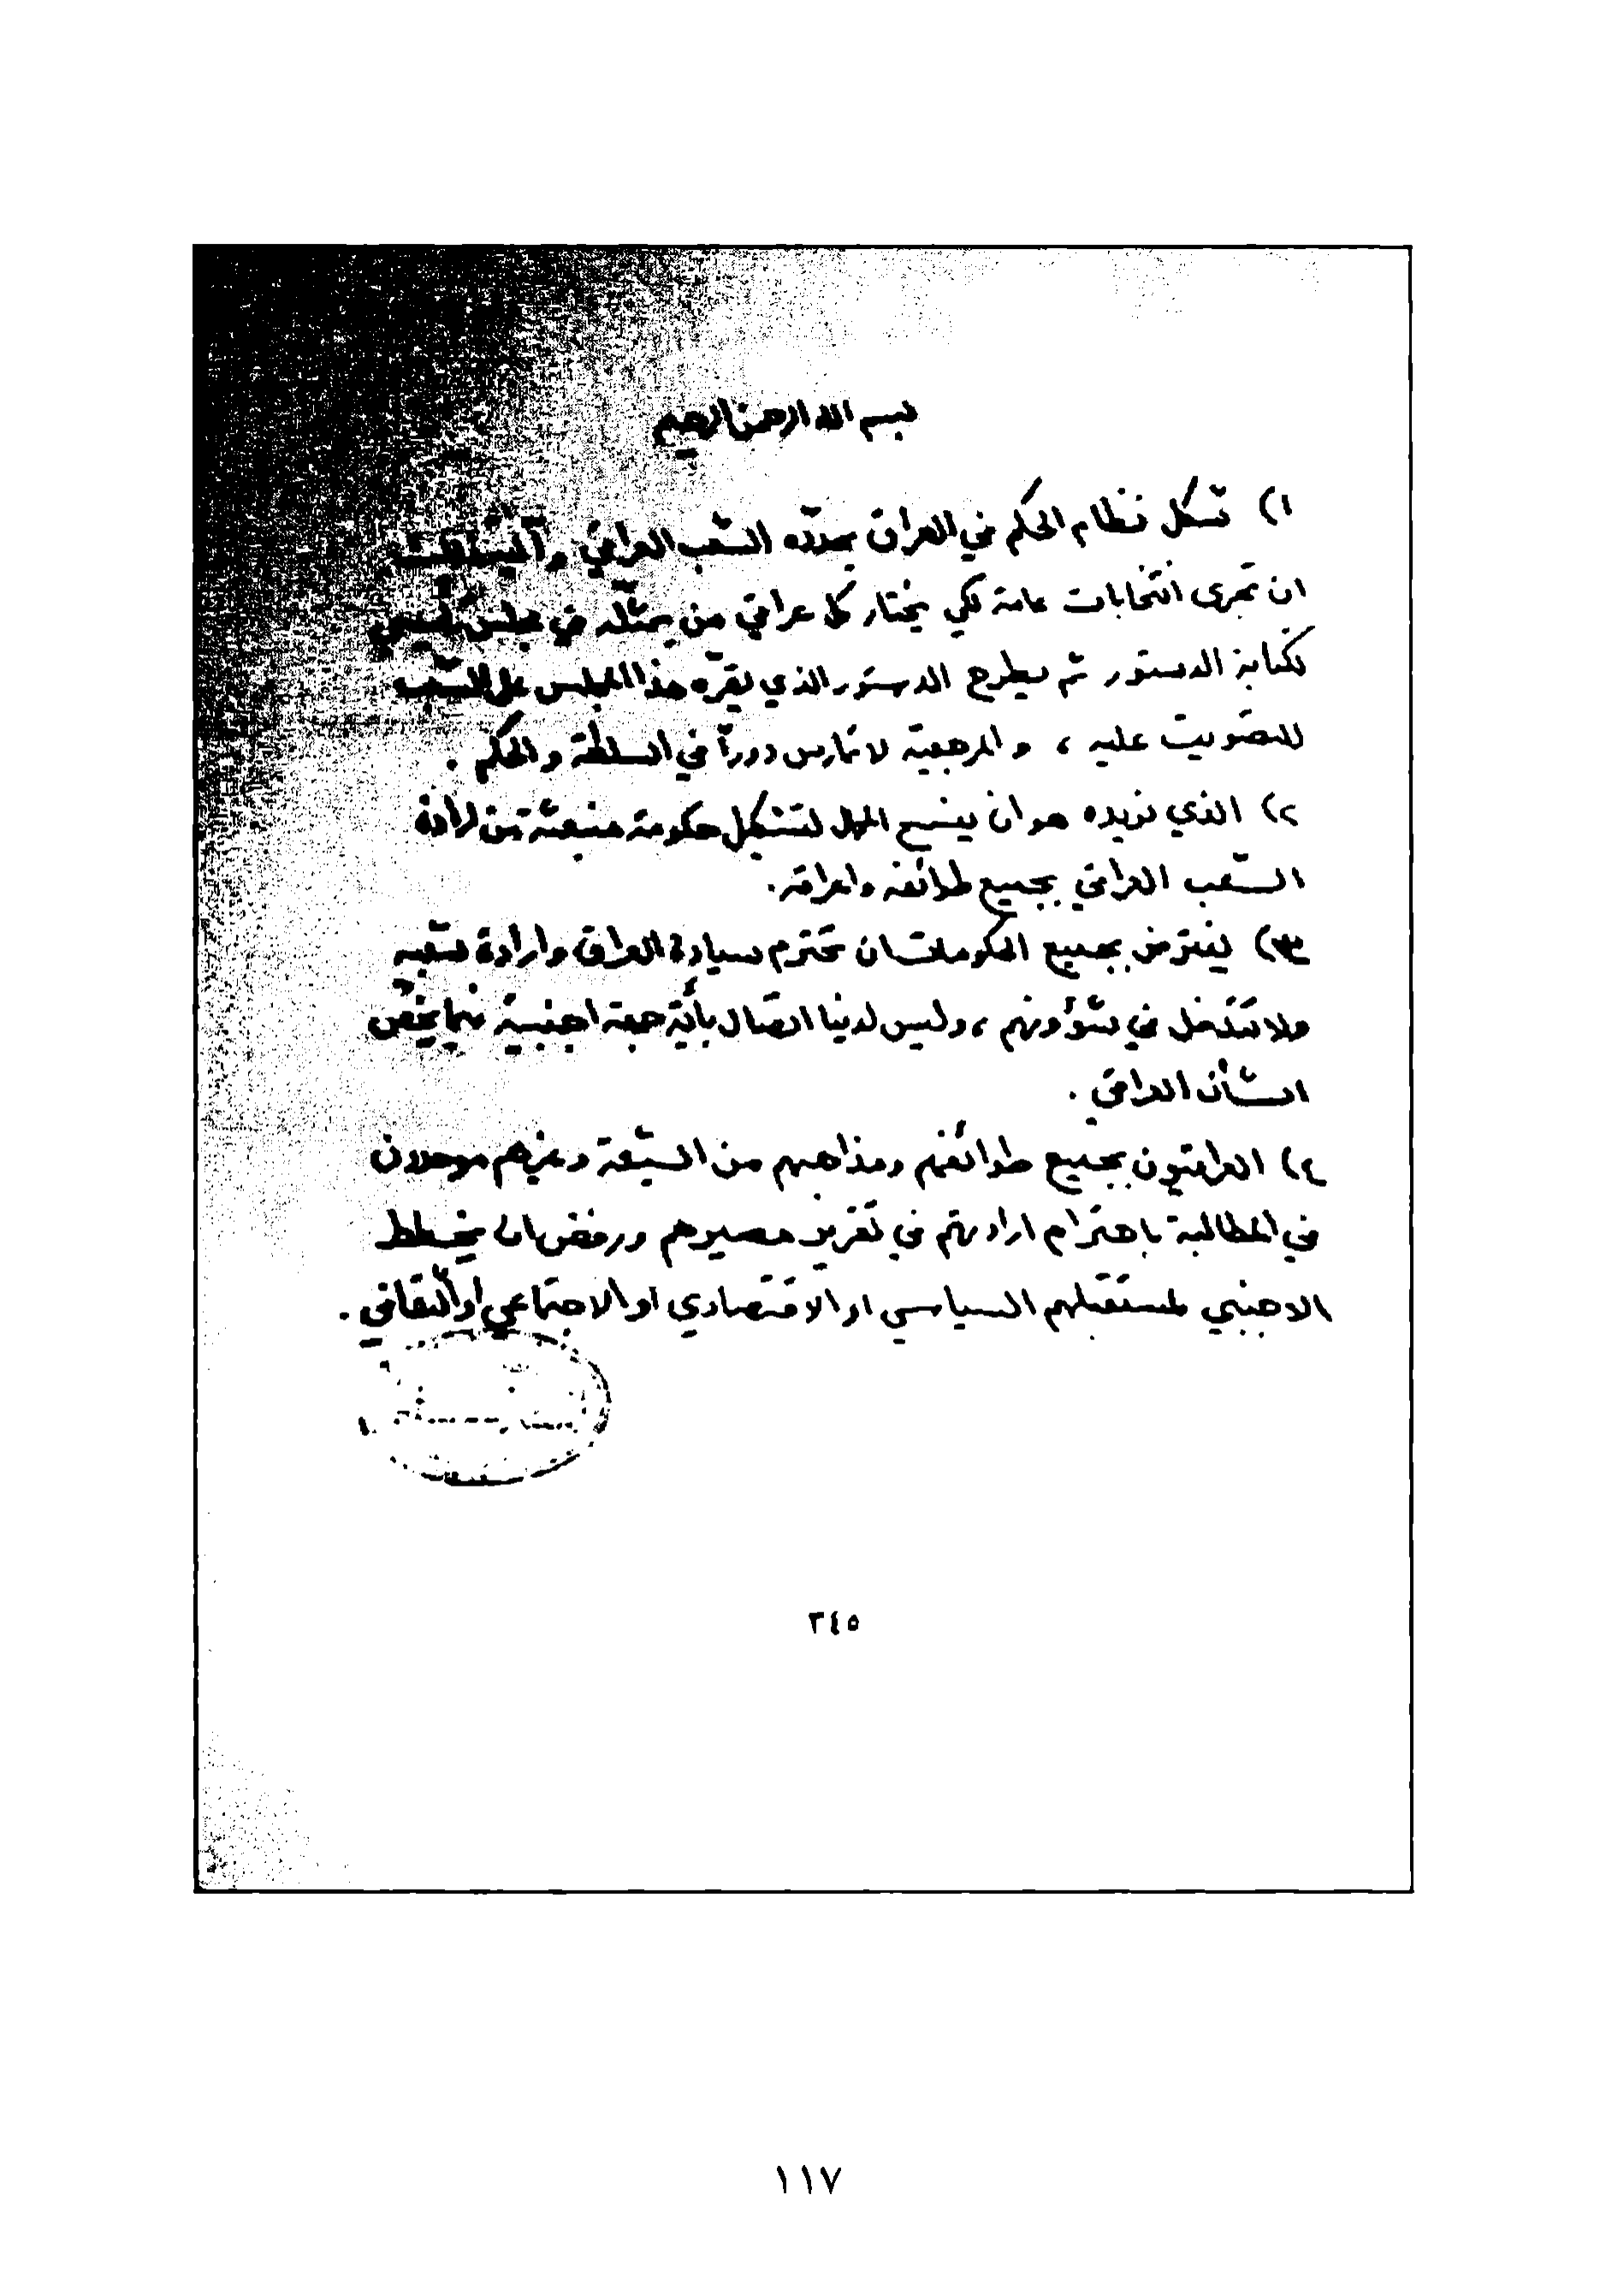 بسم الله الرحمن الرحيم
١) شكل نظام الحكم في العراق يحدده الشعب العراقي وآلية ذلك
ان تجرى انتخابات عامة لكي يختار كل عراقي من يمثله في مجلس تأسيسي
لكتابة الدستور ثم يطرح الدستور الذي يقرّه هذا المجلس على الشعب
للتصويت عليه ، والمرجعية لا تمارس دوراً في السلطة والحكم .
٢) الذي نريده هو ان يفسح المجال لتشكيل حكومة منبعثة من ارادة
الشعب العراقي بجميع طوائفه واعراقه .
٣) يفترض بجميع الحكومات ان تحترم سيادة العراق وارادة شعبه
ولا تتدخل في شؤونهم ، وليس لدينا اتصال بأيّة جهة اجنبيّة فيما يخصّ
الشأن العراقي .
٤) العراقيون بجميع طوائفهم ومذاهبهم من الشيعة وغيرهم موحدون
في المطالبة باحترام ارادتهم في تقرير مصيرهم ورفض ان يخطط
الاجنبي لمستقبلهم السياسي او الاقتصادي او الاجتماعي او الثقافي .
٣٤٥
١١٧